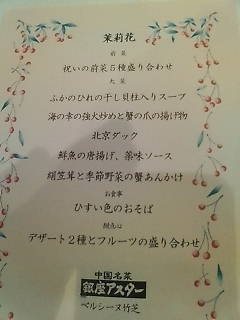 茉莉花
前菜
祝いの前菜5種盛り合わせ
大菜
ふかのひれの干し貝柱入りスープ
海の幸の強火炒めと蟹の爪の揚げ物
北京ダック
鮮魚の唐揚げ、薬味ソース
絹笠茸と季節野菜の蟹あんかけ
お食事
ひすい色のおそば
甜点は
デザート2種とフルーツの盛り合わせ
中国名菜
銀座アスター
ベルシーヌ竹芝